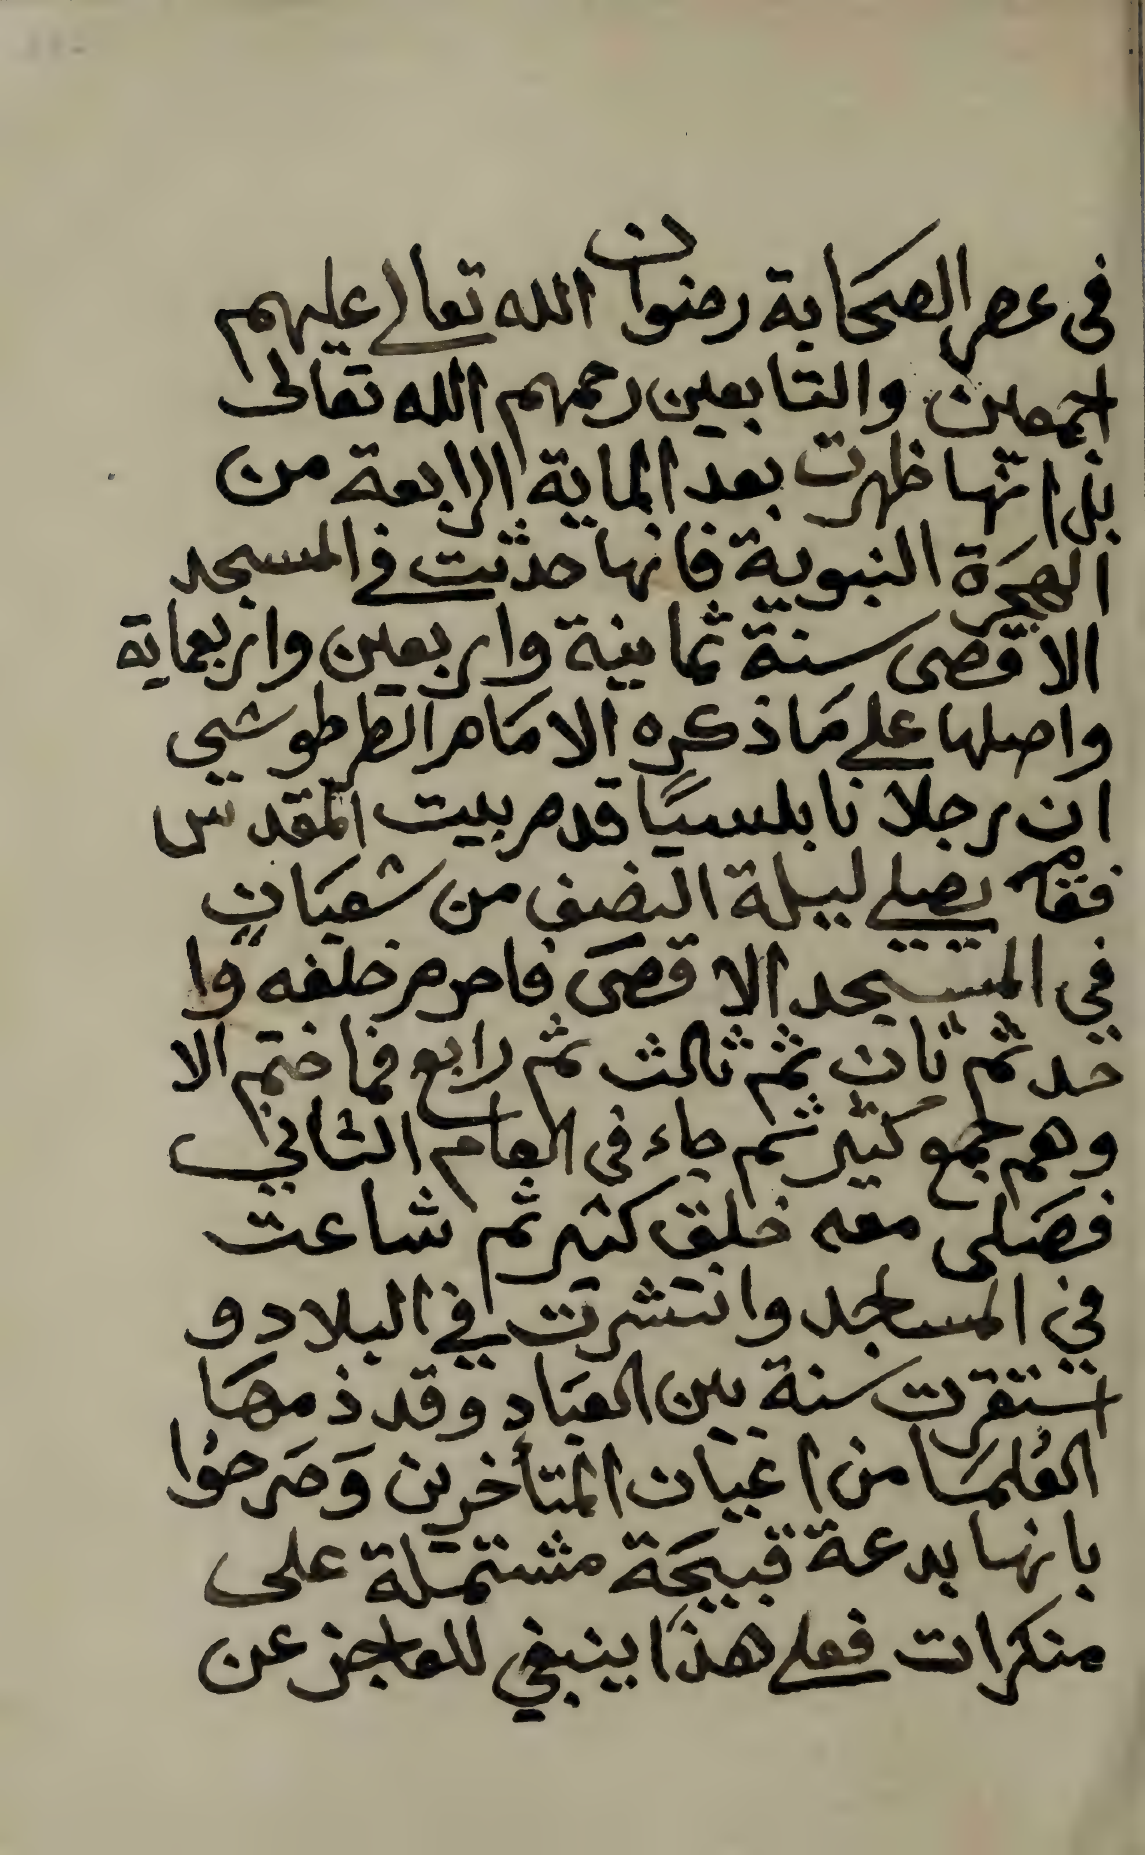 في عصر الصحابة رضوان الله تعالى عليهم
اجمعين والتابعين رحمهم الله تعالى
بل انها ظهرت بعد الماية الرابعة من
الهجرة النبوية فانها حدثت في المسجد
الاقصى سنة ثمانية واربعين واربعماية
واصلها على ما ذكره الامام الطرطوشي
ان رجلا نابلسيًا قدم بيت المقدس
فقام يصلي ليلة النصف من شعبان
في المسجد الاقصى فاحرم خلفه وا
حد ثم ثان ثم ثالث ثم رابع فما ختم الا
وهم جمع كثير ثم جاء في العام الثاني
فصلى معه خلق كثير ثم شاعت
في المساجد وانتشرت في البلاد و
استقرت سنة بين العباد وقد ذمها
العُلمَا من اعيان المتأخرين وَصَرحوُا
بانها بدعة قبيحَة مشتمَلة على
منكرات فعلى هذَا ينبغي للعاجز عن